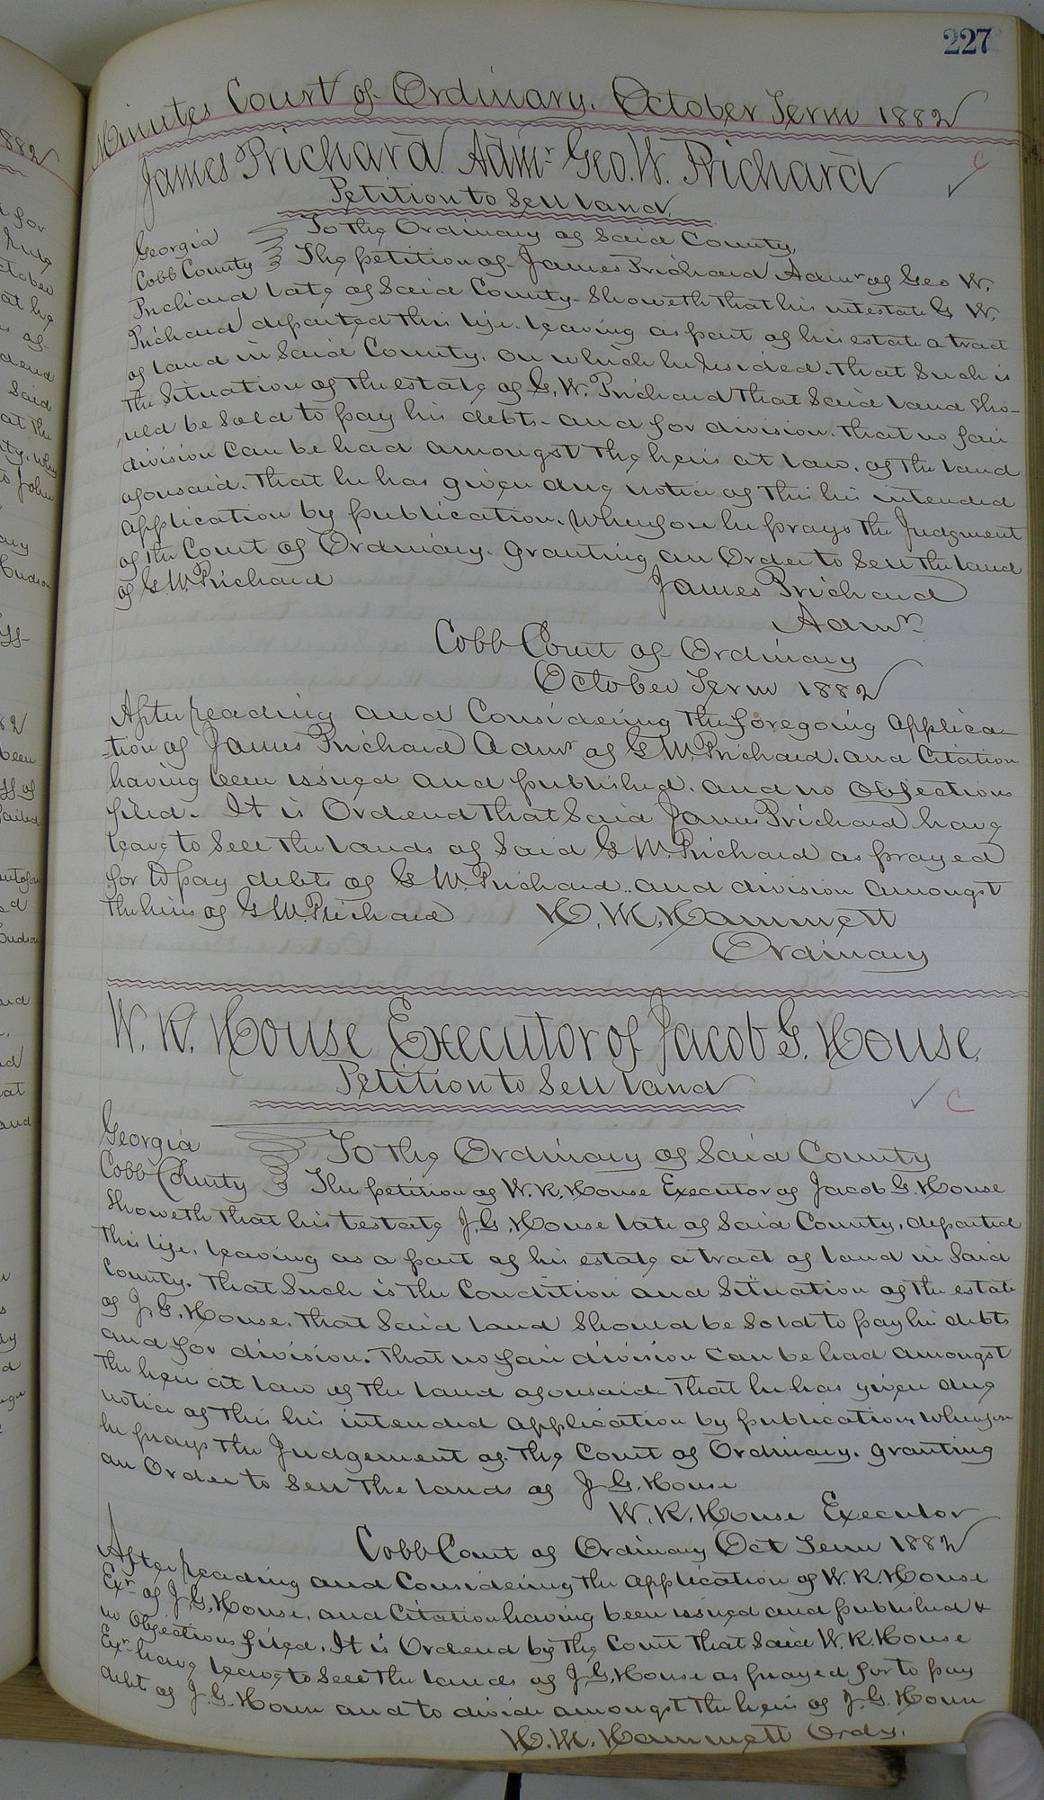 227
Minutes Court of Ordinary. October Term 1882
James Prichard Admr Geo. W. Prichard
Petition to Sell Land
Georgia To the Ordinary of Said County.
Cobb County The petition of James Prichard Admr of Geo W.
Prichard late of Said County Showeth that his intestate G W.
Prichard departed this life. leaving as part of his estate a tract
of land in Said County. on which he resided. that Such is
the Situation of the estate of G. W. Prichard that Said land Sho-
uld be Sold to pay his debts. and for division. that no fair
division can be had amongst the heirs at law. of the land
aforesaid. that he has given due notice of this his intended
application by publication. Wherefore he prays the Judgment
of the Court of Ordinary. granting an Order to Sell the land
of G W. Prichard
James Prichard
Admr.
Cobb Court of Ordinary
October Term 1882
After reading and Considering the foregoing applica-
-tion of James Prichard Admr of G W. Prichard. and Citation
having been issued and published. and no Objections
filed. It is Ordered that Said James Prichard have
leave to Sell the lands of Said G W. Prichard as prayed
for to pay debts of G W. Prichard.. and division amongst
the heirs of G W. Prichard H. M. Hammett
Ordinary
W. R. House Executor of Jacob G. House.
Petition to Sell Land
Georgia To the Ordinary of Said County
Cobb County The petition of W. R. House Executor of Jacob G. House
Showeth that his testate J. G. House late of Said County. departed
this life. leaving as a part of his estate a tract of land in Said
County. that Such is the Condition and Situation of the estate
of J. G. House. that Said land Should be Sold to pay his debts
and for division. that no fair division can be had amongst
the heirs at law of the land aforesaid that he has given due
notice of this his intended application by publication wherefore
he prays the Judgement of the Court of Ordinary. granting
an Order to Sell the lands of J G. House
W. R. House Executor
Cobb Court of Ordinary Oct Term 1882
After reading and Considering the application of W. R. House
Exr of J. G. House. and Citation having been issued and published &
no Objections filed. It is Ordered by the Court that Said W. R. House
Exr have leave to Sell the lands of J. G. House as prayed for to pay
debts of J. G. House and to divide amongst the heirs of J. G. House
H. M. Hammett Ordy.